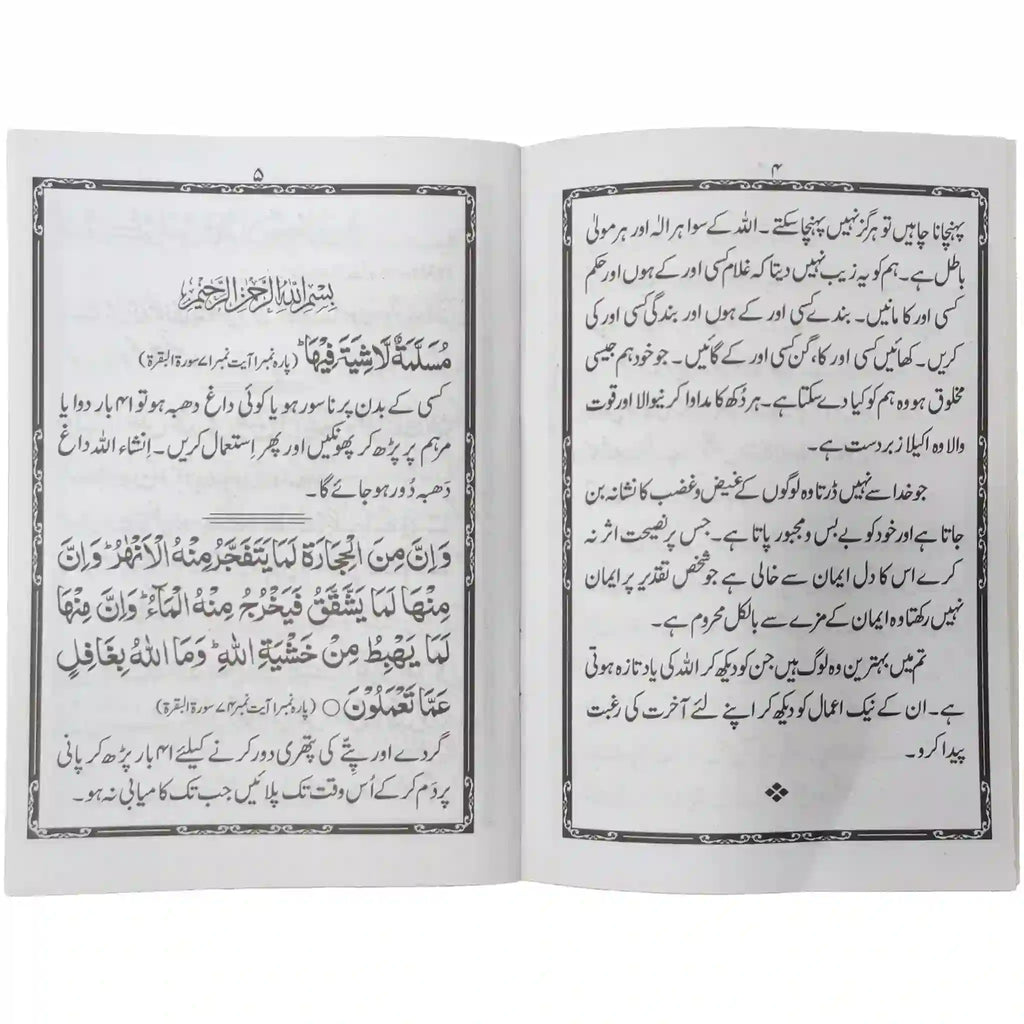 ۴
پہنچانا چاہیں تو ہرگز نہیں پہنچا سکتے۔ اللہ کے سوا ہر الٰہ اور ہر مولیٰ
باطل ہے۔ ہم کو یہ زیب نہیں دیتا کہ غلام کسی اور کے ہوں اور حکم
کسی اور کا مانیں۔ بندے کسی اور کے ہوں اور بندگی کسی اور کی
کریں۔ کھائیں کسی اور کا، گن کسی اور کے گائیں۔ جو خود ہم جیسی
مخلوق ہو وہ ہم کو کیا دے سکتا ہے۔ ہر دُکھ کا مداوا کرنیوالا اور قوت
والا وہ اکیلا زبردست ہے۔
جو خدا سے نہیں ڈرتا وہ لوگوں کے غیض و غضب کا نشانہ بن
جاتا ہے اور خود کو بے بس و مجبور پاتا ہے۔ جس پر نصیحت اثر نہ
کرے اس کا دل ایمان سے خالی ہے جو شخص تقدیر پر ایمان
نہیں رکھتا وہ ایمان کے مزے سے بالکل محروم ہے۔
تم میں بہترین وہ لوگ ہیں جن کو دیکھ کر اللہ کی یاد تازہ ہوتی
ہے۔ ان کے نیک اعمال کو دیکھ کر اپنے لئے آخرت کی رغبت
پیدا کرو۔
۵
بِسْمِ اللهِ الرَّحْمٰنِ الرَّحِيْمِ
مُسَلَّمَةٌ لَّا شِيَةَ فِيْهَا ؕ (پارہ نمبر ۱ آیت نمبر ۷۱ سورۃ البقرۃ)
کسی کے بدن پر ناسور ہو یا کوئی داغ دھبہ ہو تو ۴۱ بار دوا یا
مرہم پر پڑھ کر پھونکیں اور پھر اِستعمال کریں۔ اِنشاء اللہ داغ
دَھبہ دُور ہو جائے گا۔
وَاِنَّ مِنَ الْحِجَارَةِ لَمَا يَتَفَجَّرُ مِنْهُ الْاَنْهٰرُ ؕ وَاِنَّ
مِنْهَا لَمَا يَشَّقَّقُ فَيَخْرُجُ مِنْهُ الْمَآءُ ؕ وَاِنَّ مِنْهَا
لَمَا يَهْبِطُ مِنْ خَشْيَةِ اللهِ ؕ وَمَا اللهُ بِغَافِلٍ
عَمَّا تَعْمَلُوْنَ ○ (پارہ نمبر ۱ آیت نمبر ۷۴ سورۃ البقرۃ)
گردے اور پِتّے کی پتھری دور کرنے کیلئے ۴۱ بار پڑھ کر پانی
پر دَم کر کے اُس وقت تک پلائیں جب تک کامیابی نہ ہو۔